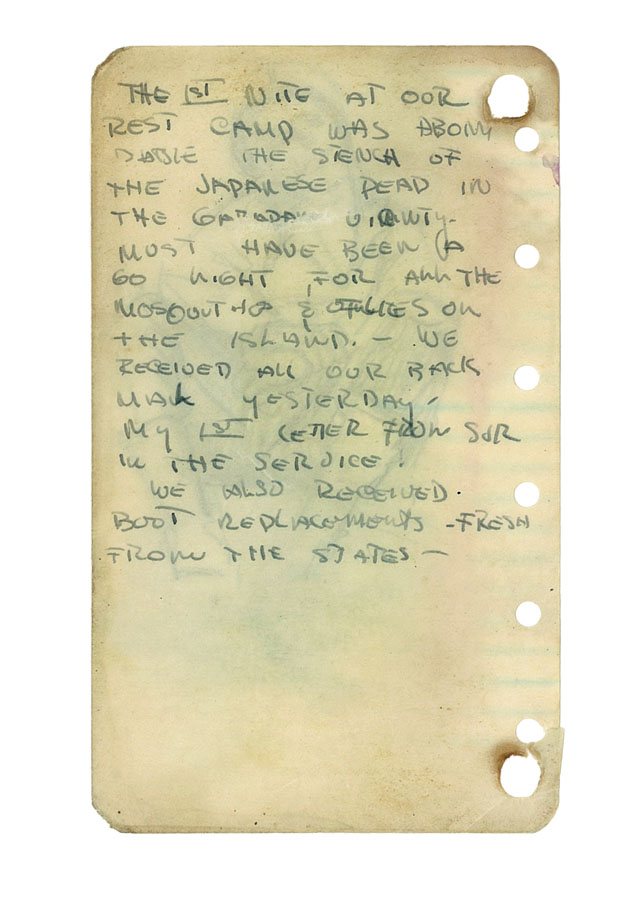 THE 1ST NITE AT OUR
REST CAMP WAS ABOM
DABLE THE STENCH OF
THE JAPANESE DEAD IN
THE VICINITY -
MUST HAVE BEEN A
GO NIGHT FOR ALL THE
& FLIES ON
THE ISLAND. - WE
RECEIVED ALL OUR BACK
MAIL YESTERDAY -
MY 1ST LETTER FROM
IN THE SERVICE!
WE ALSO RECEIVED
BOOT REPLACEMENTS - FRESH
FROM THE STATES -